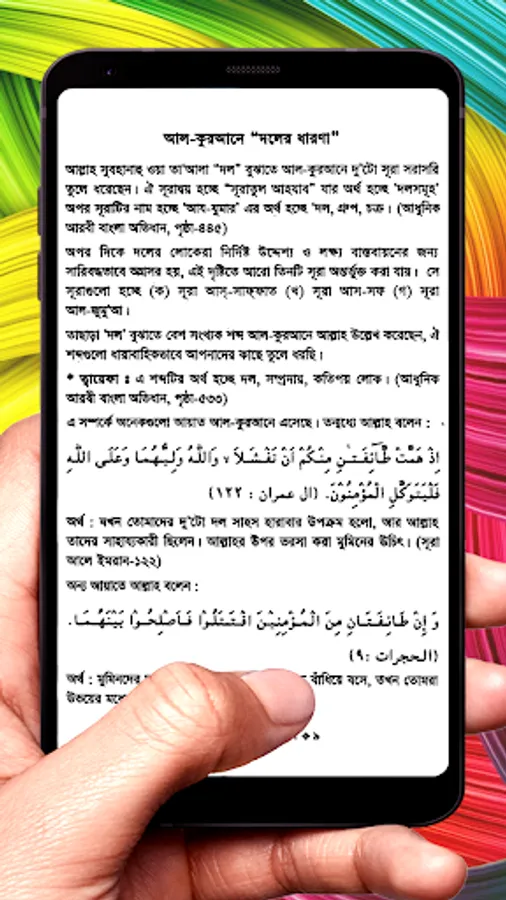 আল-কুরআনে “দলের ধারণা”
আল্লাহ সুবহানাহু ওয়া তা'আলা “দল” বুঝাতে আল-কুরআনে দু'টো সূরা সরাসরি
তুলে ধরেছেন। ঐ সূরাদ্বয় হচ্ছে “সূরাতুল আহযাব” যার অর্থ হচ্ছে 'দলসমূহ'
অপর সূরাটির নাম হচ্ছে 'আয-যুমার' এর অর্থ হচ্ছে 'দল, গ্রুপ, চক্র। (আধুনিক
আরবী বাংলা অভিধান, পৃষ্ঠা-৪৪৫)
অপর দিকে দলের লোকেরা নির্দিষ্ট উদ্দেশ্য ও লক্ষ্য বাস্তবায়নের জন্য
সারিবদ্ধভাবে অগ্রসর হয়, এই দৃষ্টিতে আরো তিনটি সূরা অন্তর্ভুক্ত করা যায়। সে
সূরাগুলো হচ্ছে (ক) সূরা আস্-সাফ্ফাত (খ) সূরা আস-সফ (গ) সূরা
আল-জুমু'আ।
তাছাড়া 'দল' বুঝাতে বেশ সংখ্যক শব্দ আল-কুরআনে আল্লাহ উল্লেখ করেছেন, ঐ
শব্দগুলো ধারাবাহিকভাবে আপনাদের কাছে তুলে ধরছি।
* ত্বায়েফা : এ শব্দটির অর্থ হচ্ছে দল, সম্প্রদায়, কতিপয় লোক। (আধুনিক
আরবী বাংলা অভিধান, পৃষ্ঠা-৫৩৩)
এ সম্পর্কে অনেকগুলো আয়াত আল-কুরআনে এসেছে। তন্মধ্যে আল্লাহ বলেন :
اِذْ هَمَّتْ طَّآئِفَتٰنِ مِنْكُمْ اَنْ تَفْشَلاَ ٧ وَاللّٰهُ وَلِيُّهُمَا وَعَلَى اللّٰهِ
فَلْيَتَوَكَّلِ الْمُؤْمِنُوْنَ. (ال عمران : ١٢٢)
অর্থ : যখন তোমাদের দু'টো দল সাহস হারাবার উপক্রম হলো, আর আল্লাহ
তাদের সাহায্যকারী ছিলেন। আল্লাহর উপর ভরসা করা মুমিনের উচিৎ। (সূরা
আলে ইমরান-১২২)
অন্য আয়াতে আল্লাহ বলেন :
وَ اِنْ طَائِفَتَانِ مِنَ الْمُؤْمِنِيْنَ اقْتَتَلُوْا فَاَصْلِحُوْا بَيْنَهُمَا.
(الحجرات :٩)
অর্থ : মুমিনদের বাঁধিয়ে বসে, তখন তোমরা
উভয়ের